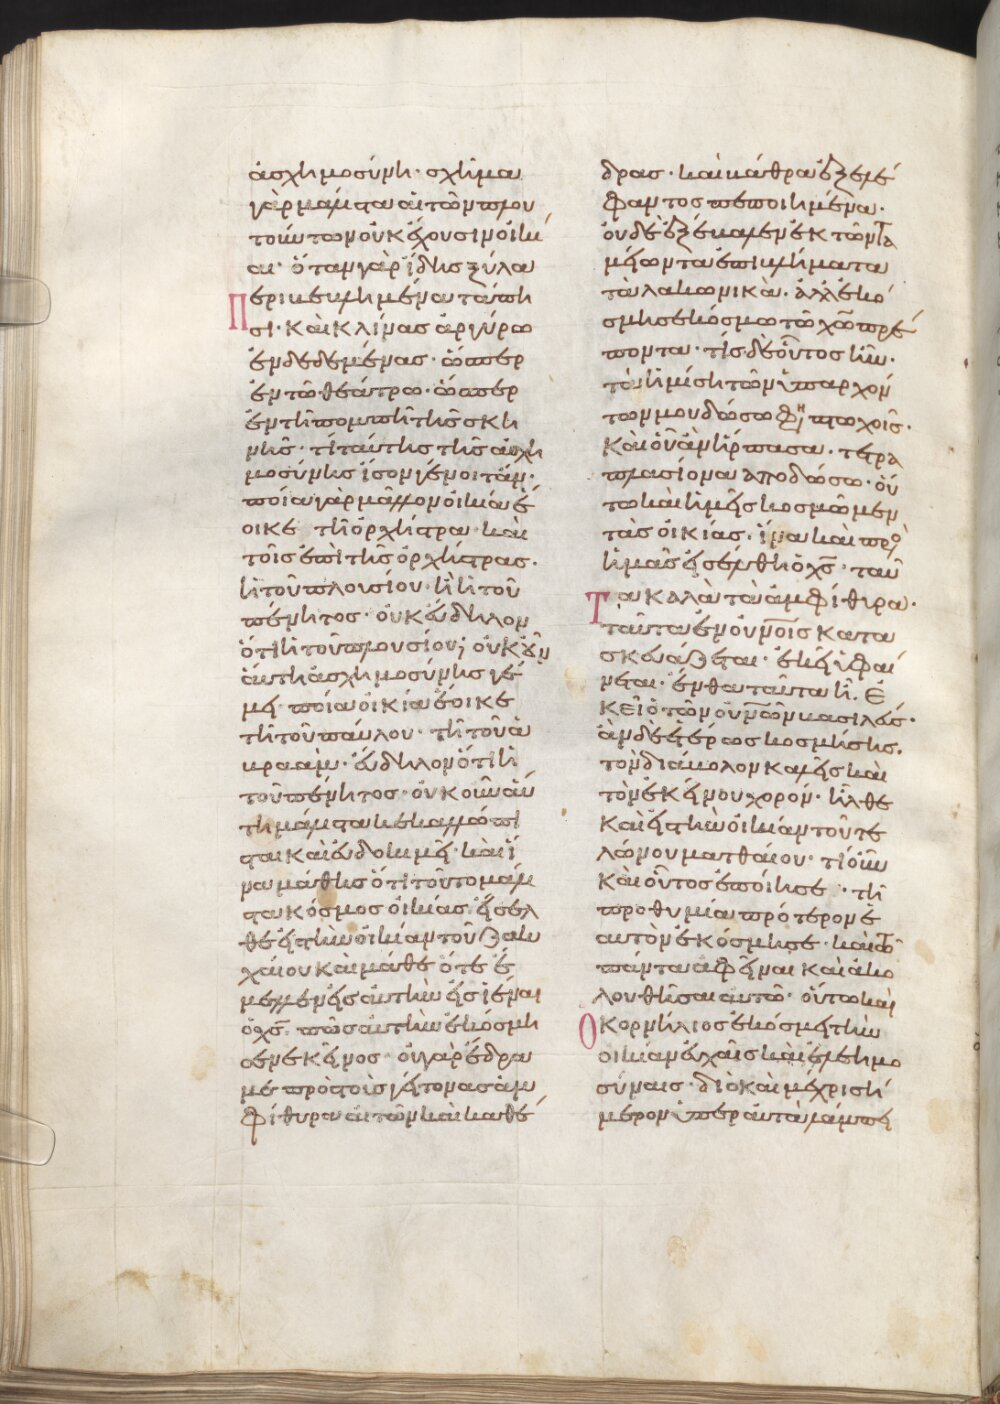 ἀσχημοσύνη· σχῆμα
γὰρ μάλιστα αἱ τῶν πλου
τούντων οὐκ ἔχουσιν οἰκί
αι· ὅταν γὰρ ἴδῃς ξύλα
περικεκλημένα τάπη
σι· καὶ κλίνας ἀργύρω
ἐνδεδεμένας· ὥσπερ
ἐν τῶ θεάτρω· ὥσπερ
ἐν τῆ πομπῆ τῆς σκη
νῆς· τί ταύτης τῆς ἀσχη
μοσύνης ἴσον γένοιτ ἄν·
ποία γὰρ μᾶλλον οἰκία ἔ
οικε τῆ ὀρχήστρα καὶ
τοῖς ἐπὶ τῆς ὀρχήστρας·
ἡ τοῦ πλουσίου· ἢ ἡ τοῦ
πένητος· οὐκ εὔδηλον
ὅτι ἡ τοῦ πλουσίου; οὐκοῦν
αὕτη ἀσχημοσύνης γέ
μει· ποία οἰκία ἔοικε
τῆ τοῦ παύλου· τῆ τοῦ ἀ
βραάμ· εὔδηλον ὅτι ἡ
τοῦ πένητος· οὐκοῦν αὕ
τη μάλιστα κεκαλλώπι
σται καὶ εὐδοκιμεῖ· καὶ ἵ
να μάθης ὅτι τοῦτο μάλι
στα κόσμος οἰκίας· εἴσελ
θε εἰς τὴν οἰκίαν τοῦ ζακ
χαίου καὶ μάθε ὅτε ἔ
μελλεν εἰς αὐτὴν εἰσιέναι
ὁ χς πῶς αὐτὴν ἐκόσμη
σεν ἐκεῖνος· οὐ γὰρ ἔδρα
με πρὸς τοὺς γείτονας ἀμ
φίθυρα αἰτῶν καὶ καθέ
δρας· καὶ βάθρα ἐξ ἐλέ
φαντος πεποιημένα·
οὐδὲ ἐξέβαλεν ἐκ τῶν τα
μείων τὰ ἐπικλήματα
τὰ λακωνικὰ· ἀλλ ἐκό
σμησε κόσμω τῶ χῶ πρέ
ποντα· τίς δὲ οὗτος ἦν·
τὰ ἡμίση τῶν ὑπαρχόν
των μου δώσω φησι πτωχοῖς·
καὶ οὗ ἂν ἥρπασα· τετρα
πλασίονα ἀποδώσω· οὕ
τω καὶ ἡμεῖς κοσμῶμεν
τὰς οἰκίας· ἵνα καὶ πρὸς
ἡμᾶς εἰσέλθη ὁ χς· ταῦ
τα καλὰ τὰ ἀμφίθυρα·
ταῦτα ἐν οὐνοῖς κατα
σκευάζεται· ἐκεῖ ὑφαί
νεται· ἔνθα ταῦτα ἦ. ἐ
κεῖ ὁ τῶν οὐνῶν βασιλεύς·
ἂν δὲ ἑτέρως κοσμήσης.
τὸν διάβολον καλεῖς καὶ
τὸν ἐκείνου χορόν· ἦλθε
καὶ εἰς τὴν οἰκίαν τοῦ τε
λώνου ματθαίου· τί οὖν
καὶ οὗτος ἐποίησε· τῆ
προθυμία πρότερον ἑ
αυτὸν ἐκόσμησε· καὶ τῶ
πάντα ἀφεῖναι καὶ ἀκο
λουθῆσαι αὐτῶ· οὕτω καὶ
ὁ κορνήλιος ἐκόσμει τὴν
οἰκίαν εὐχαῖς καὶ ἐλεημο
σύναις· διὸ καὶ μέχρι σή
μερον ὑπὲρ αὐτὰ λάμπει